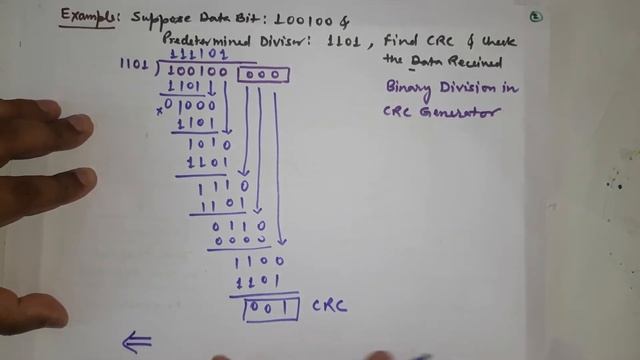 Example: Suppose Data Bit: 100100 &
Predetermined Divisor: 1101, Find CRC & Check
the Data Received
Binary Division in
CRC Generator
2
111101
1101 ) 100100 000
1101
x01000
1101
1010
1101
1110
1101
0110
0000
1100
1101
001 CRC
⇐